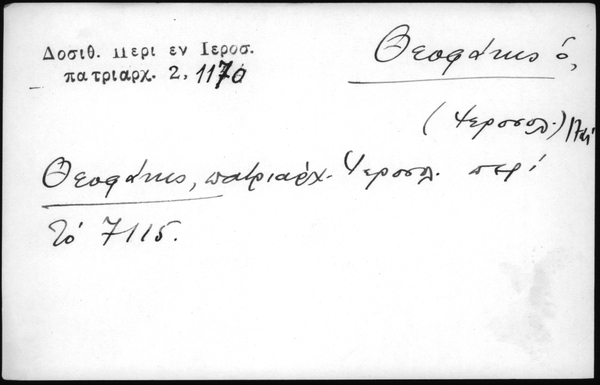 Δοσιθ. Περι εν Ιεροσ.
πατριαρχ. 2, 1170
Θεοφάνης ὁ,
(Ἱεροσολ.)
Θεοφάνης, πατριάρχ. Ἱεροσολ. περί
τό 7115.